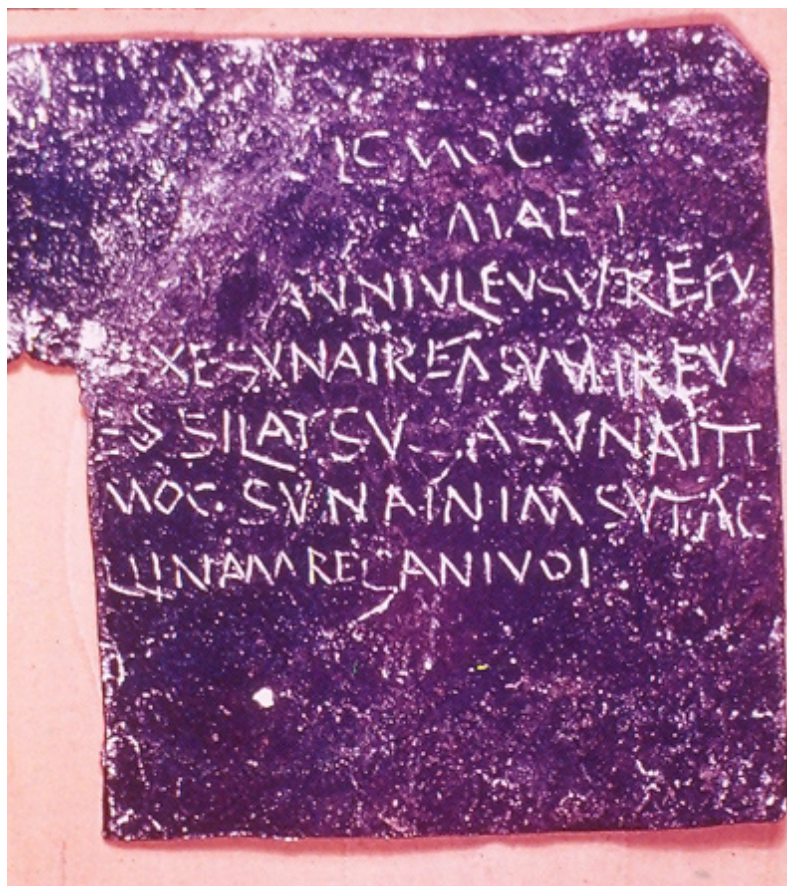 MOC
MAE
ANNIVLEV SVEREPV
XE SVNAIREV SVNIREV
ES SILATSVGVA SVNAITI
MOC SVNAINIM SVTAC
LLINAMREG ANIVOI